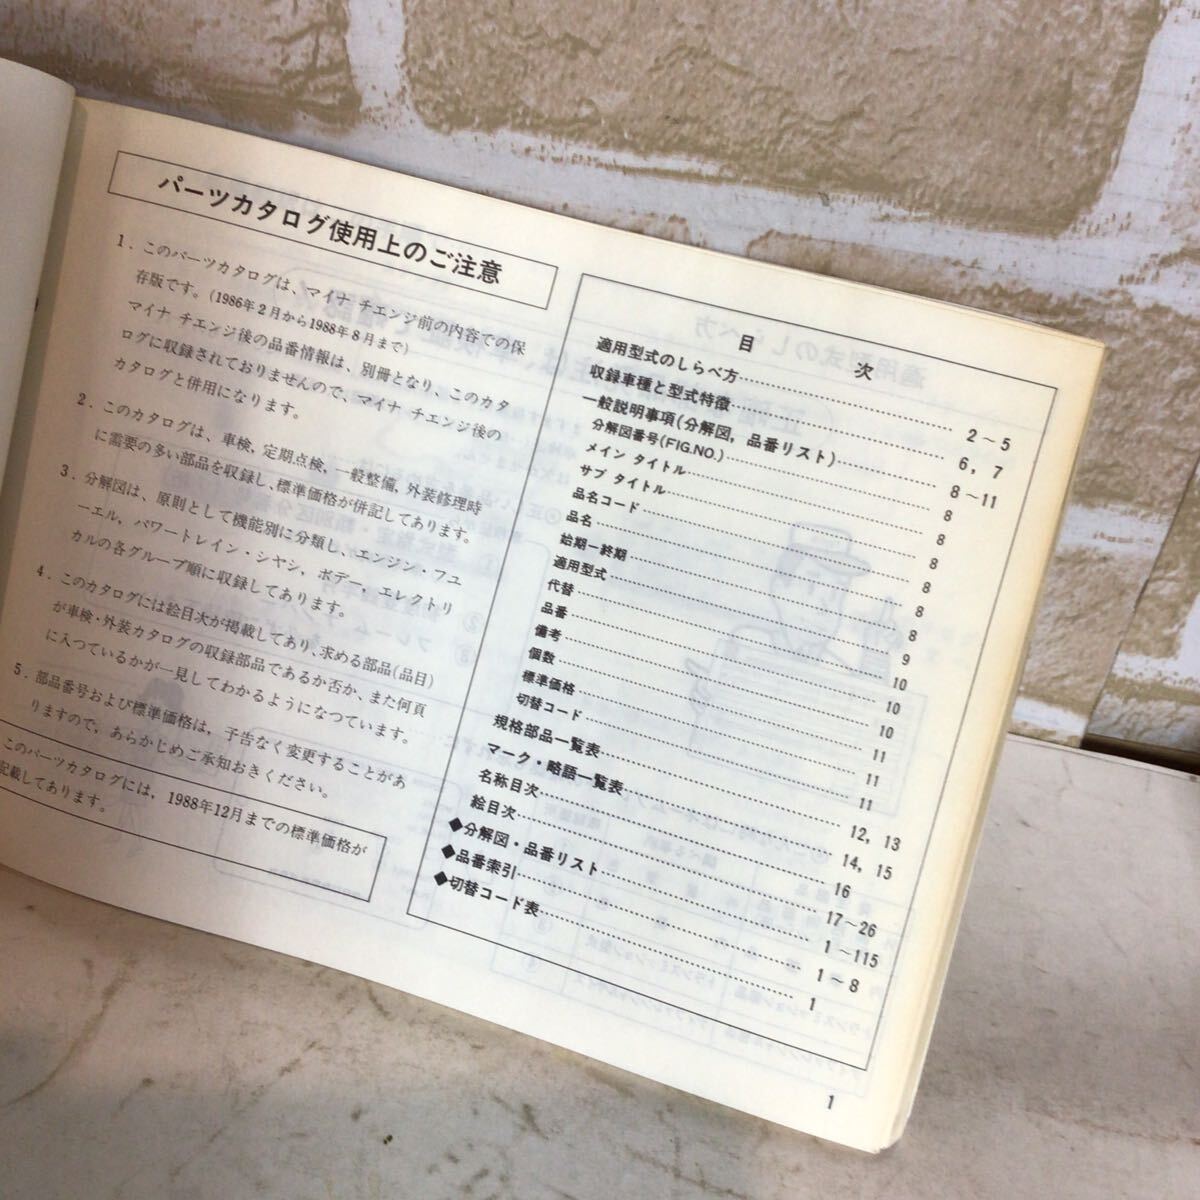 パーツカタログ使用上のご注意
1．このパーツカタログは、マイナ チエンジ前の内容での保
存版です。(1986年2月から1988年8月まで)
マイナ チエンジ後の品番情報は、別冊となり、このカタ
ログに収録されておりませんので、マイナ チエンジ後の
カタログと併用になります。
2．このカタログは、車検、定期点検、一般整備、外装修理時
に需要の多い部品を収録し、標準価格が併記してあります。
3．分解図は、原則として機能別に分類し、エンジン・フユ
ーエル，パワートレイン・シヤシ，ボデー，エレクトリ
カルの各グループ順に収録してあります。
4．このカタログには絵目次が掲載してあり、求める部品(品目)
が車検・外装カタログの収録部品であるか否か、また何頁
に入つているかが一見してわかるようになつています。
5．部品番号および標準価格は，予告なく変更することがあ
りますので，あらかじめご承知おきください。
このパーツカタログには，1988年12月までの標準価格が
記載してあります。
目 次
適用型式のしらべ方 2～5
収録車種と型式特徴 6，7
一般説明事項(分解図，品番リスト) 8～11
分解図番号(FIG.NO.) 8
メイン タイトル 8
サブ タイトル 8
品名コード 8
品名 8
始期－終期 8
適用型式 9
代替 10
品番 10
備考 10
個数 11
標準価格 11
切替コード 11
規格部品一覧表 12，13
マーク・略語一覧表 14，15
名称目次 16
絵目次 17～26
◆分解図・品番リスト 1～115
◆品番索引 1～8
◆切替コード表 1
1